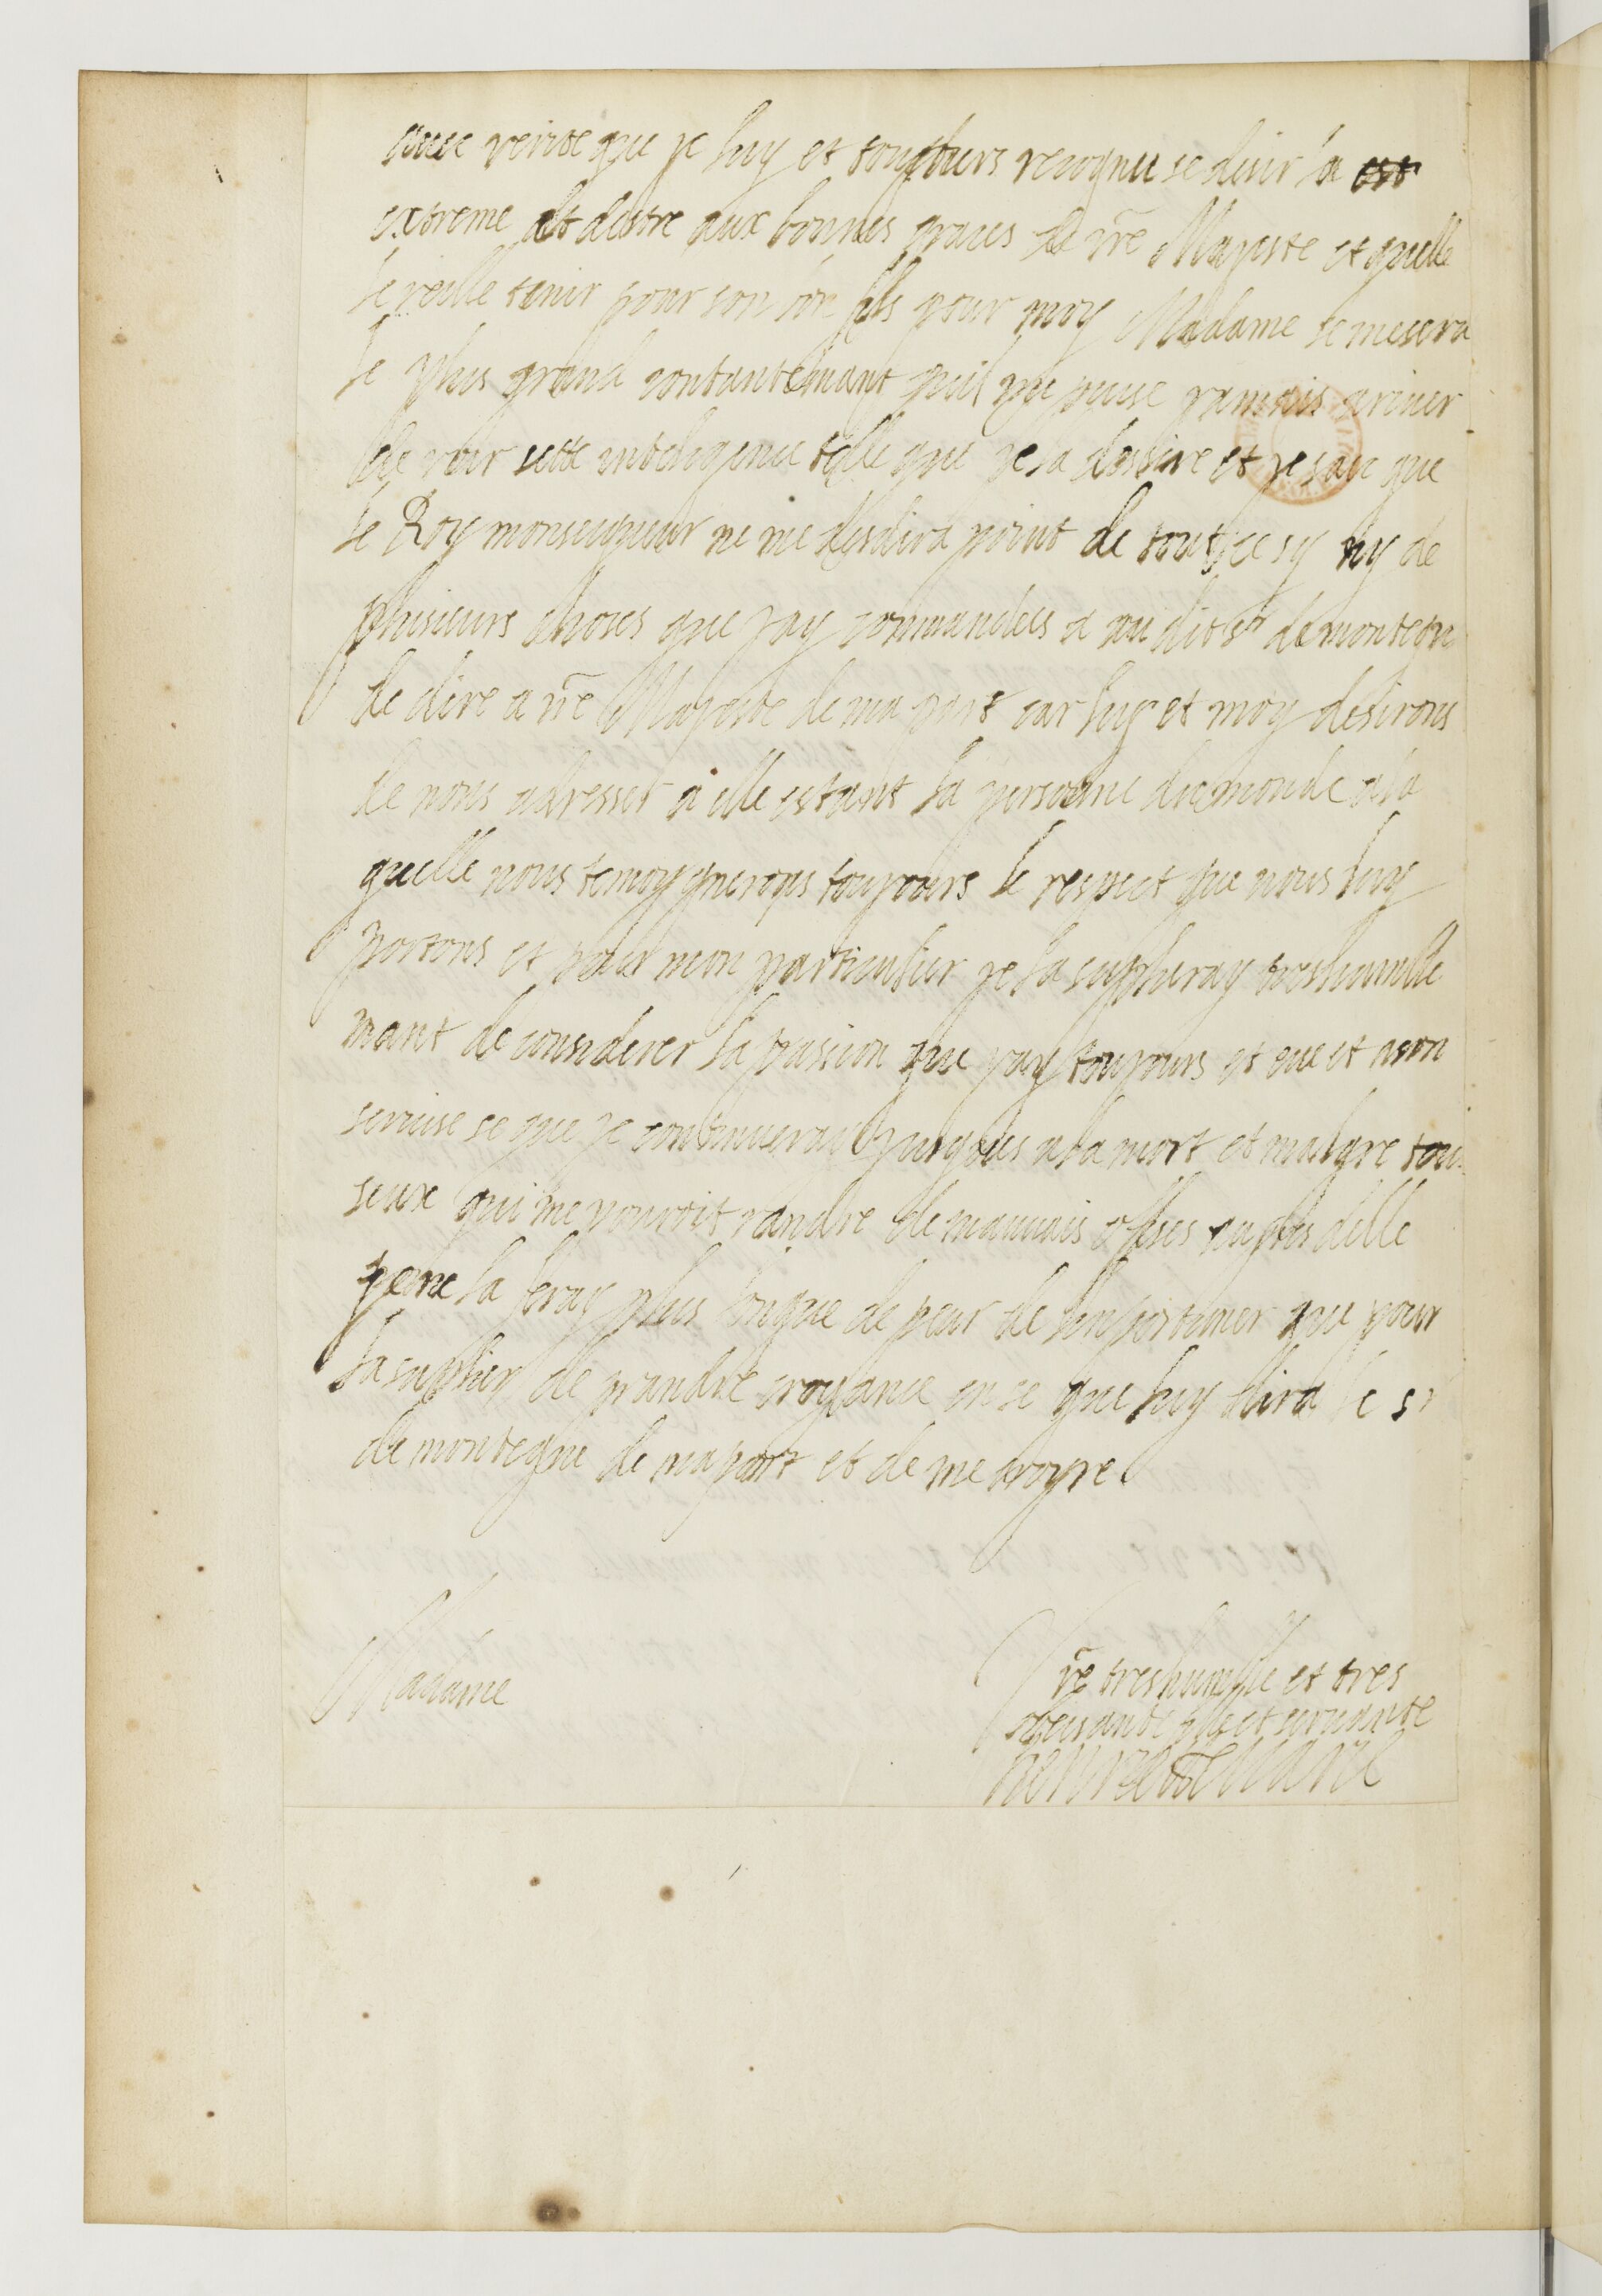 avec verite que je luy et tousjours recognu se desir la est
extreme et destre aux bonnes graces de vr̃e Majeste et quelle
le veille tenir pour son bon fils pour moy Madame se me sera
le plus grand contantemant quil me puise jamais ariver
de voir sette inteligence telle que je la desire et je sai que
le Roy monseigneur ne me desdira point de tout se sy ny de
plusieurs choses que jay commandees a au dit sr de montegu
de dire a vr̃e Majeste de ma part car luy et moy desirons
de nous adresser a elle estant la personne du monde a la
quelle nous temoygnerons toujours le respect que nous luy
portons et pour mon particulier je la suplieray treshumble
mant de considerer la passion que jay toujours et eue et a son
servise se que je continueray jusques a la mort et malgre tous
seux qui me pouroit randre de mauvais ofises aupres delle
je ne la feray plus longue de peur de linportuner que pour
la suplier de prandre croyance en se que luy dira le sr
de montegue de ma part et de me croyre
Madame
Vr̃e treshumble et tres
obeisante fille et servante
Henriette Marie